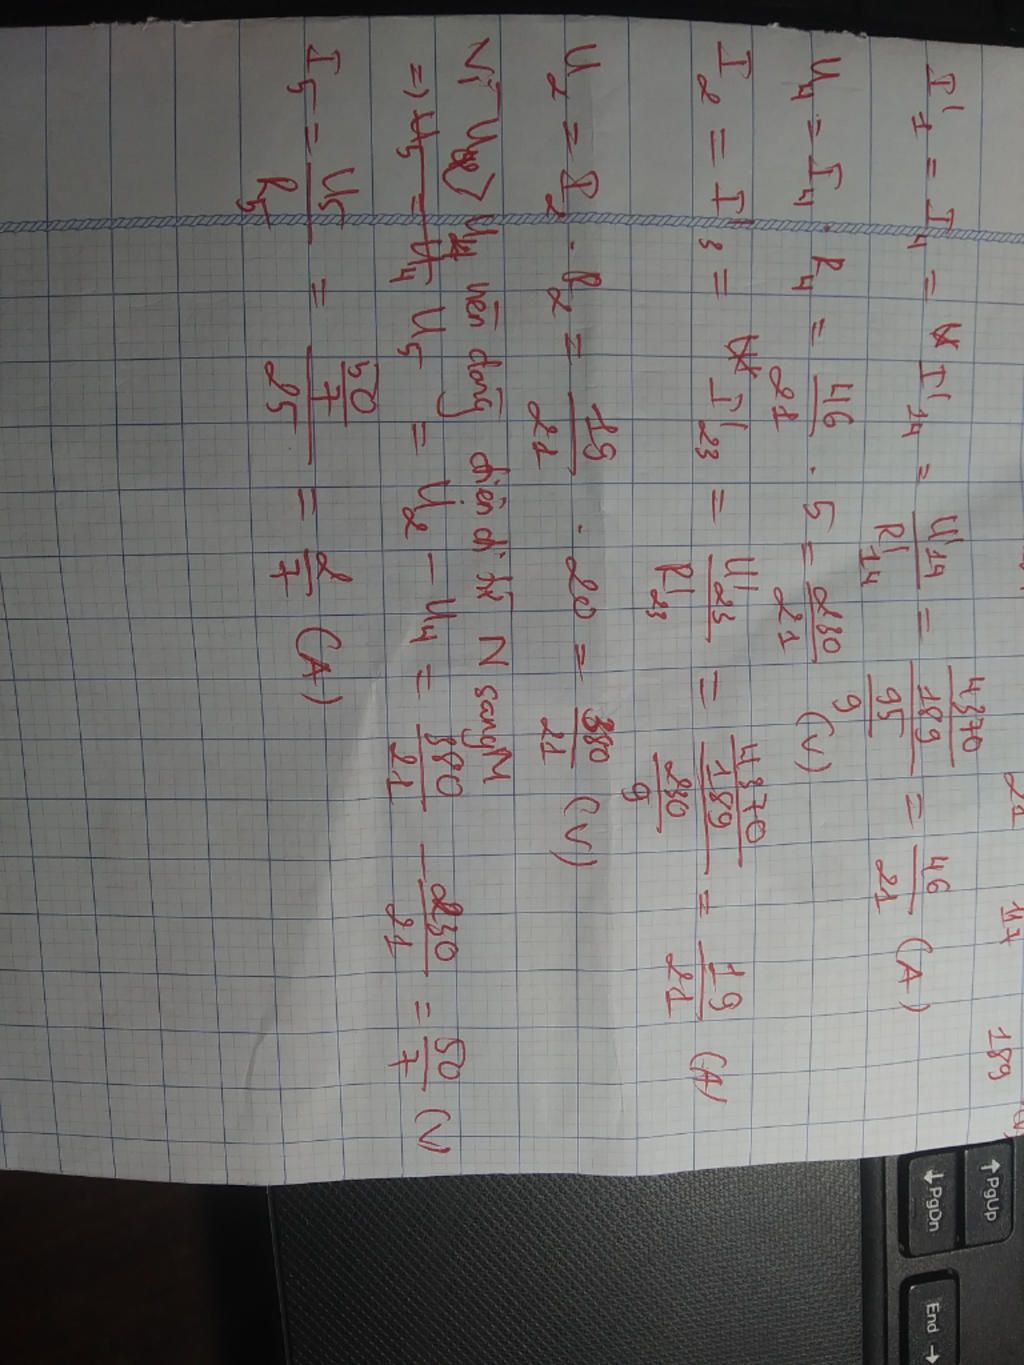 21 17 189
I'₁ = I₄ = I'₁₄ = U'₁₄/R'₁₄ = (4370/189)/(95/9) = 46/21 (A)
U₄ = I₄ . R₄ = 46/21 . 5 = 230/21 (V)
I₂ = I'₃ = I'₂₃ = U'₂₃/R'₂₃ = (4370/189)/(230/9) = 19/21 (A)
U₂ = I₂ . R₂ = 19/21 . 20 = 380/21 (V)
Vì U₂ > U₄ nên dòng điện đi từ N sang M
=> U₅ = U₄ U₅ = U₂ - U₄ = 380/21 - 230/21 = 50/7 (V)
I₅ = U₅/R₅ = (50/7)/25 = 2/7 (A)
↑ PgUp
↓ PgDn
End →